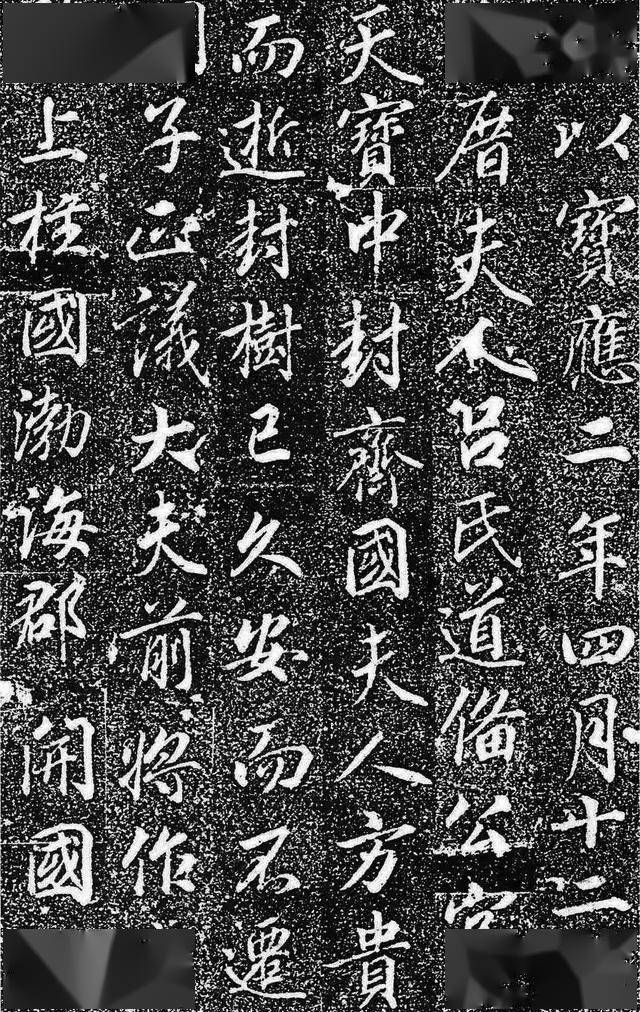 以寶應二年四月十二
厝夫人呂氏道備公
天寶中封齊國夫人方貴
而逝封樹已久安而不遷
子正議大夫前將作
上柱國渤海郡開國